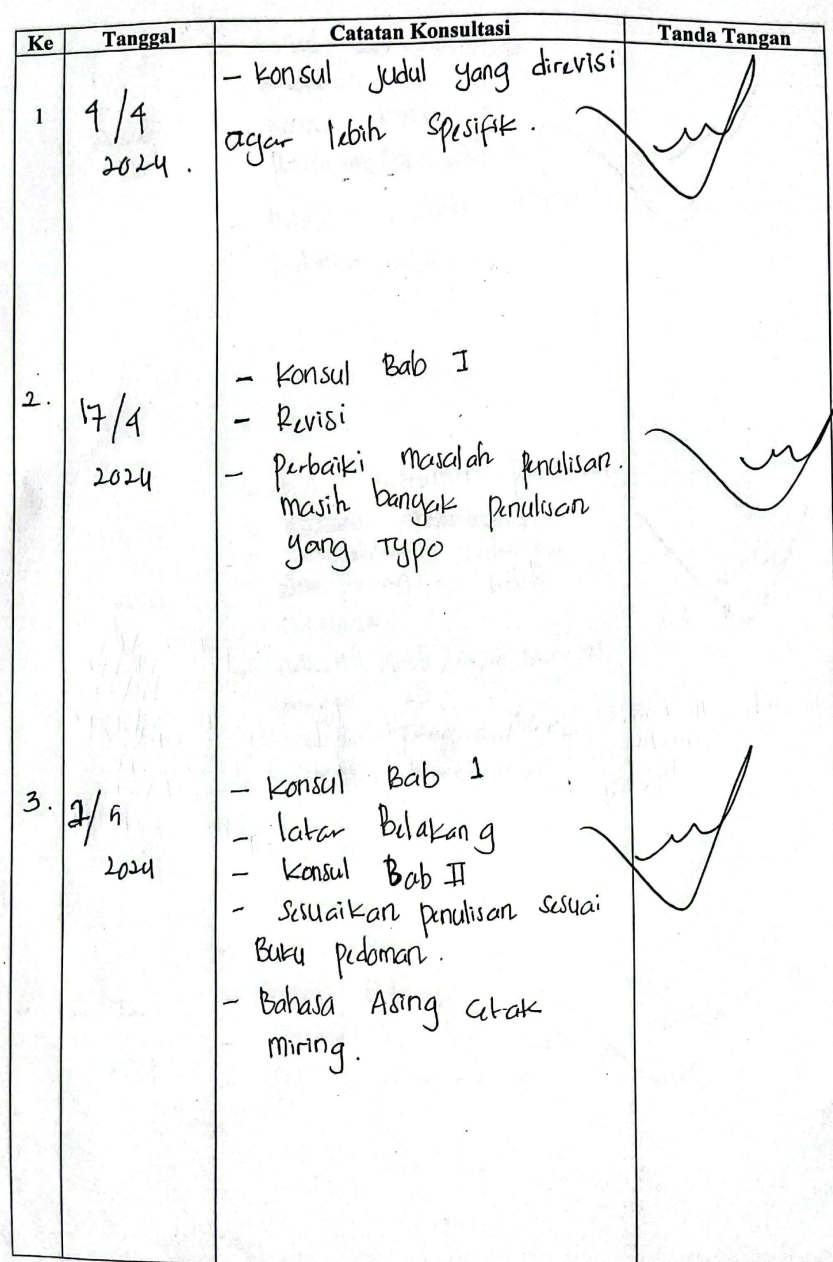 Ke Tanggal Catatan Konsultasi Tanda Tangan
- Konsul Judul yang direvisi
1 4/4 agar lebih Spesifik.
2024.
- Konsul Bab I
2. 17/4 - Revisi
2024 - Perbaiki masalah penulisan.
masih banyak penulisan
yang Typo
- Konsul Bab 1
3. /5 - latar Belakang
2024 - Konsul Bab II
- Sesuaikan penulisan sesuai
Buku pedoman.
- Bahasa Asing cetak
miring.